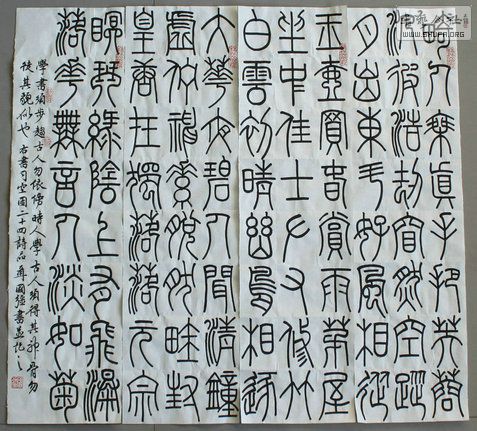 畸人乘真手把芙蓉
汎彼浩劫窅然空蹤
月出東斗好風相從
玉壺買春賞雨茅屋
坐中佳士左右修竹
白雲初晴幽鳥相逐
大華夜碧人聞清鐘
虛佇神素脫然畦封
皇唐在獨落落元宗
眠琴綠陰上有飛瀑
落花無言人淡如菊
學書須步趨古人勿依傍時人學古人須得其神骨勿
徒其貌似也 右書司空圖二十四詩品 國強書並記之
WWW.SHUFA.ORG